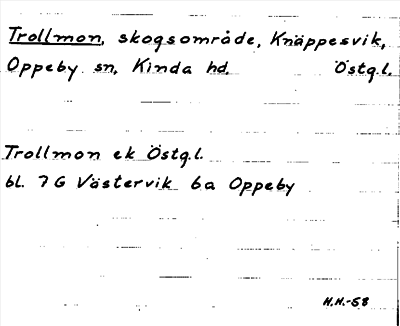 Trollmon, skogsområde, Knäppesvik,
Oppeby sn, Kinda hd. Östg.l.
Trollmon ek Östg.l.
bl. 7G Västervik 6a Oppeby
H.H.-58